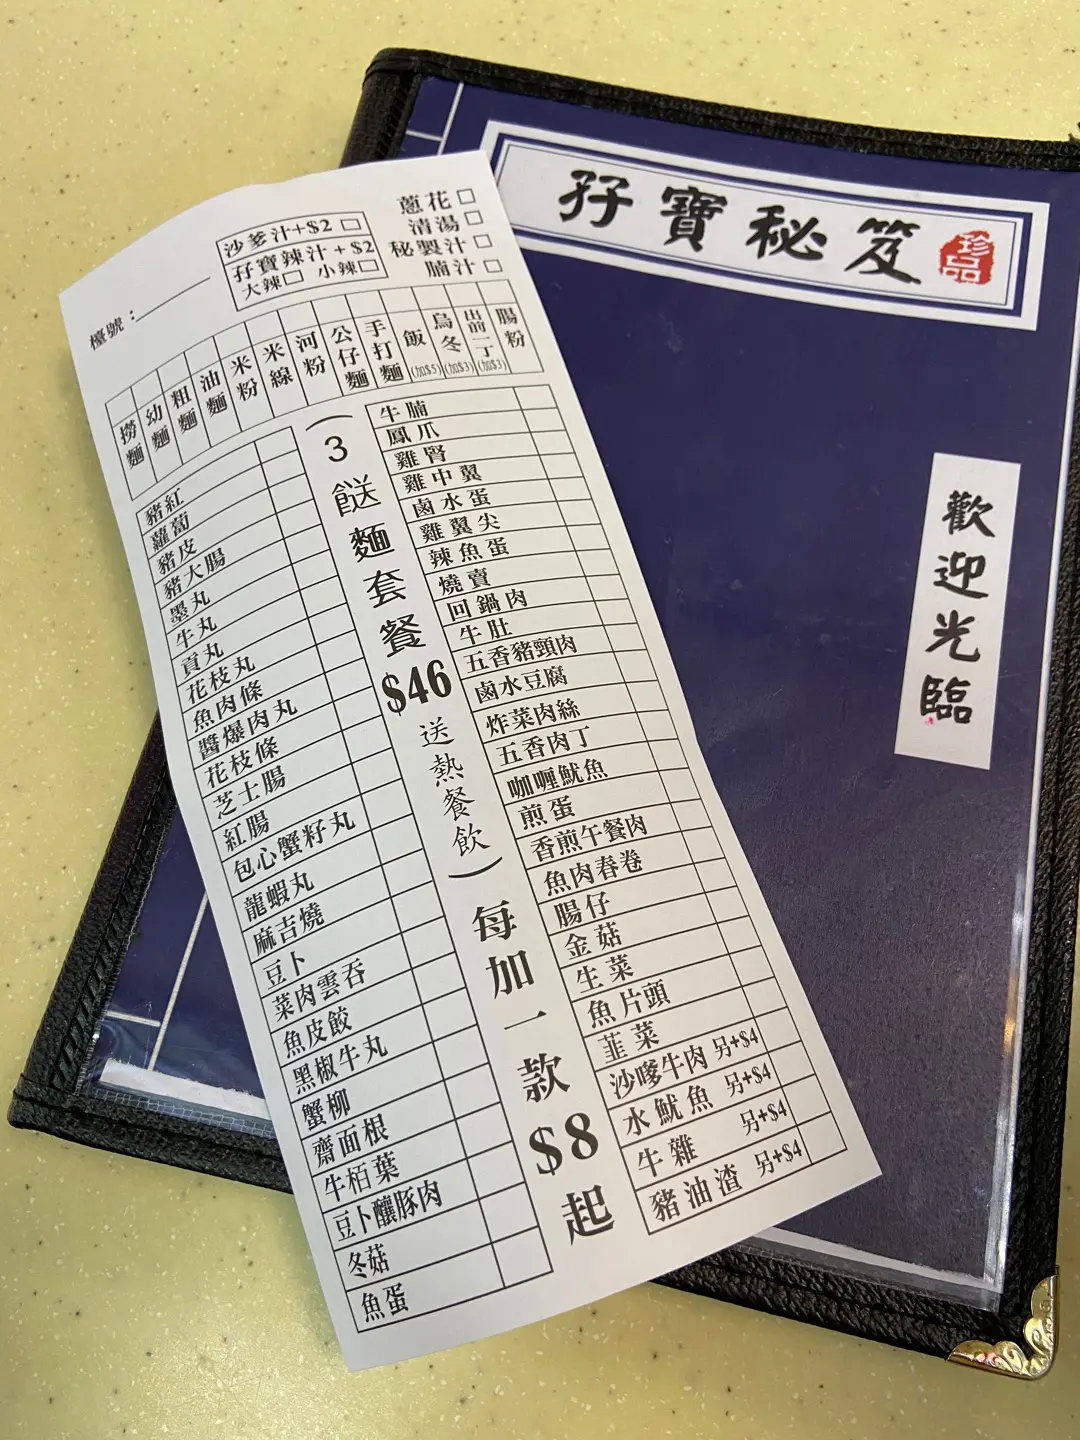 孖寶秘笈
珍品
歡迎光臨
蔥花
清湯
秘製汁
腩汁
沙爹汁+$2
孖寶辣汁+$2
大辣 小辣
檯號：
撈麵
幼麵
粗麵
油麵
米粉
米線
河粉
公仔麵
手打麵
飯(加$5)
烏冬(加$3)
出前一丁(加$3)
腸粉
豬紅
蘿蔔
豬皮
豬大腸
墨丸
牛丸
貢丸
花枝丸
魚肉條
醬爆肉丸
花枝條
芝士腸
紅腸
包心蟹籽丸
龍蝦丸
麻吉燒
豆卜
菜肉雲吞
魚皮餃
黑椒牛丸
蟹柳
齋面根
牛栢葉
豆卜釀豚肉
冬菇
魚蛋
(3餸麵套餐$46送熱餐飲)每加一款$8起
牛腩
鳳爪
雞腎
雞中翼
鹵水蛋
雞翼尖
辣魚蛋
燒賣
回鍋肉
牛肚
五香豬頸肉
鹵水豆腐
炸菜肉絲
五香肉丁
咖喱魷魚
煎蛋
香煎午餐肉
魚肉春卷
腸仔
金菇
生菜
魚片頭
韮菜
沙嗲牛肉 另+$4
水魷魚 另+$4
牛雜 另+$4
豬油渣 另+$4